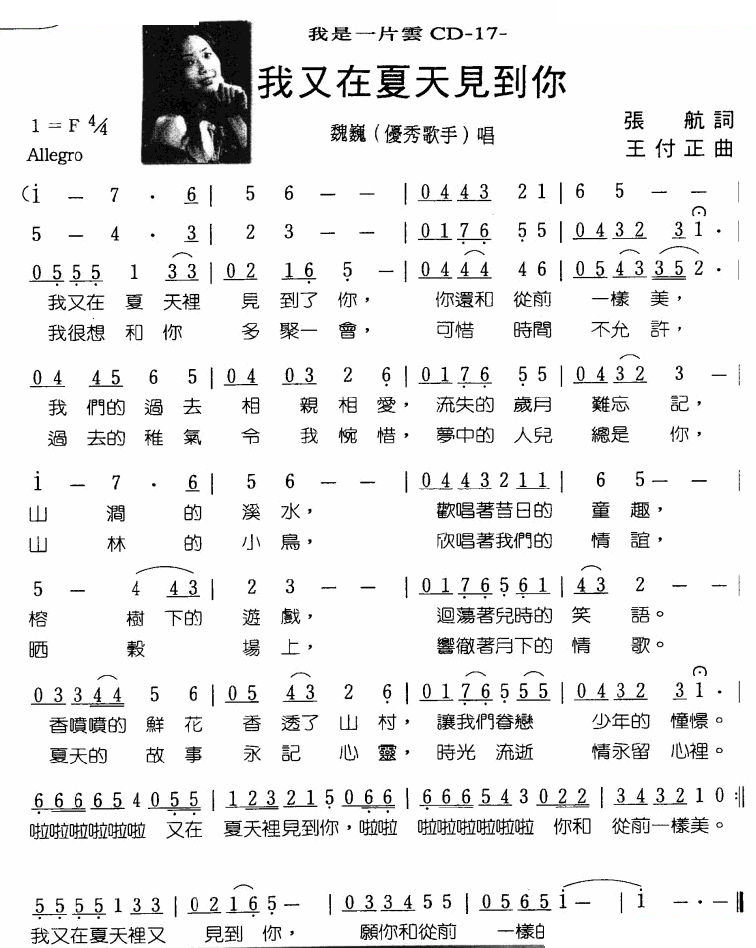 我是一片雲 CD-17-
我又在夏天見到你
1 = F 4/4
張 航 詞
魏巍（優秀歌手）唱
王付正曲
Allegro
(i － 7 · 6 | 5 6 － － | 0 4 4 3 2 1 | 6 5 － － |
5 － 4 · 3 | 2 3 － － | 0 1 7 6 5 5 | 0 4 3 2 3 1 · |
0 5 5 5 1 3 3 | 0 2 1 6 5 － | 0 4 4 4 4 6 | 0 5 4 3 3 5 2 · |
我又在 夏 天裡 見 到了 你， 你還和 從前 一樣 美，
我很想 和 你 多 聚一 會， 可惜 時間 不允 許，
0 4 4 5 6 5 | 0 4 0 3 2 6 | 0 1 7 6 5 5 | 0 4 3 2 3 － |
我 們的 過 去 相 親 相 愛， 流失的 歲月 難忘 記，
過 去的 稚 氣 令 我 惋 惜， 夢中的 人兒 總是 你，
i － 7 · 6 | 5 6 － － | 0 4 4 3 2 1 1 | 6 5 － － |
山 澗 的 溪 水， 歡唱著昔日的 童 趣，
山 林 的 小 鳥， 欣唱著我們的 情 誼，
5 － 4 4 3 | 2 3 － － | 0 1 7 6 5 6 1 | 4 3 2 － － |
榕 樹 下的 遊 戲， 迴蕩著兒時的 笑 語。
晒 穀 場 上， 響徹著月下的 情 歌。
0 3 3 4 4 5 6 | 0 5 4 3 2 6 | 0 1 7 6 5 5 5 | 0 4 3 2 3 1 · |
香噴噴的 鮮 花 香 透了 山 村， 讓我們眷戀 少年的 憧憬。
夏天的 故 事 永 記 心 靈， 時光 流逝 情永留 心裡。
6 6 6 6 6 5 4 0 5 5 | 1 2 3 2 1 5 0 6 6 | 6 6 6 5 4 3 0 2 2 | 3 4 3 2 1 0 :||
啦啦啦啦啦啦 又在 夏天裡見到你，啦啦 啦啦啦啦啦啦 你和 從前一樣美。
5 5 5 5 1 3 3 | 0 2 1 6 5 － | 0 3 3 4 5 5 | 0 5 6 5 i － | i － · － ||
我又在夏天裡又 見到 你， 願你和從前 一樣